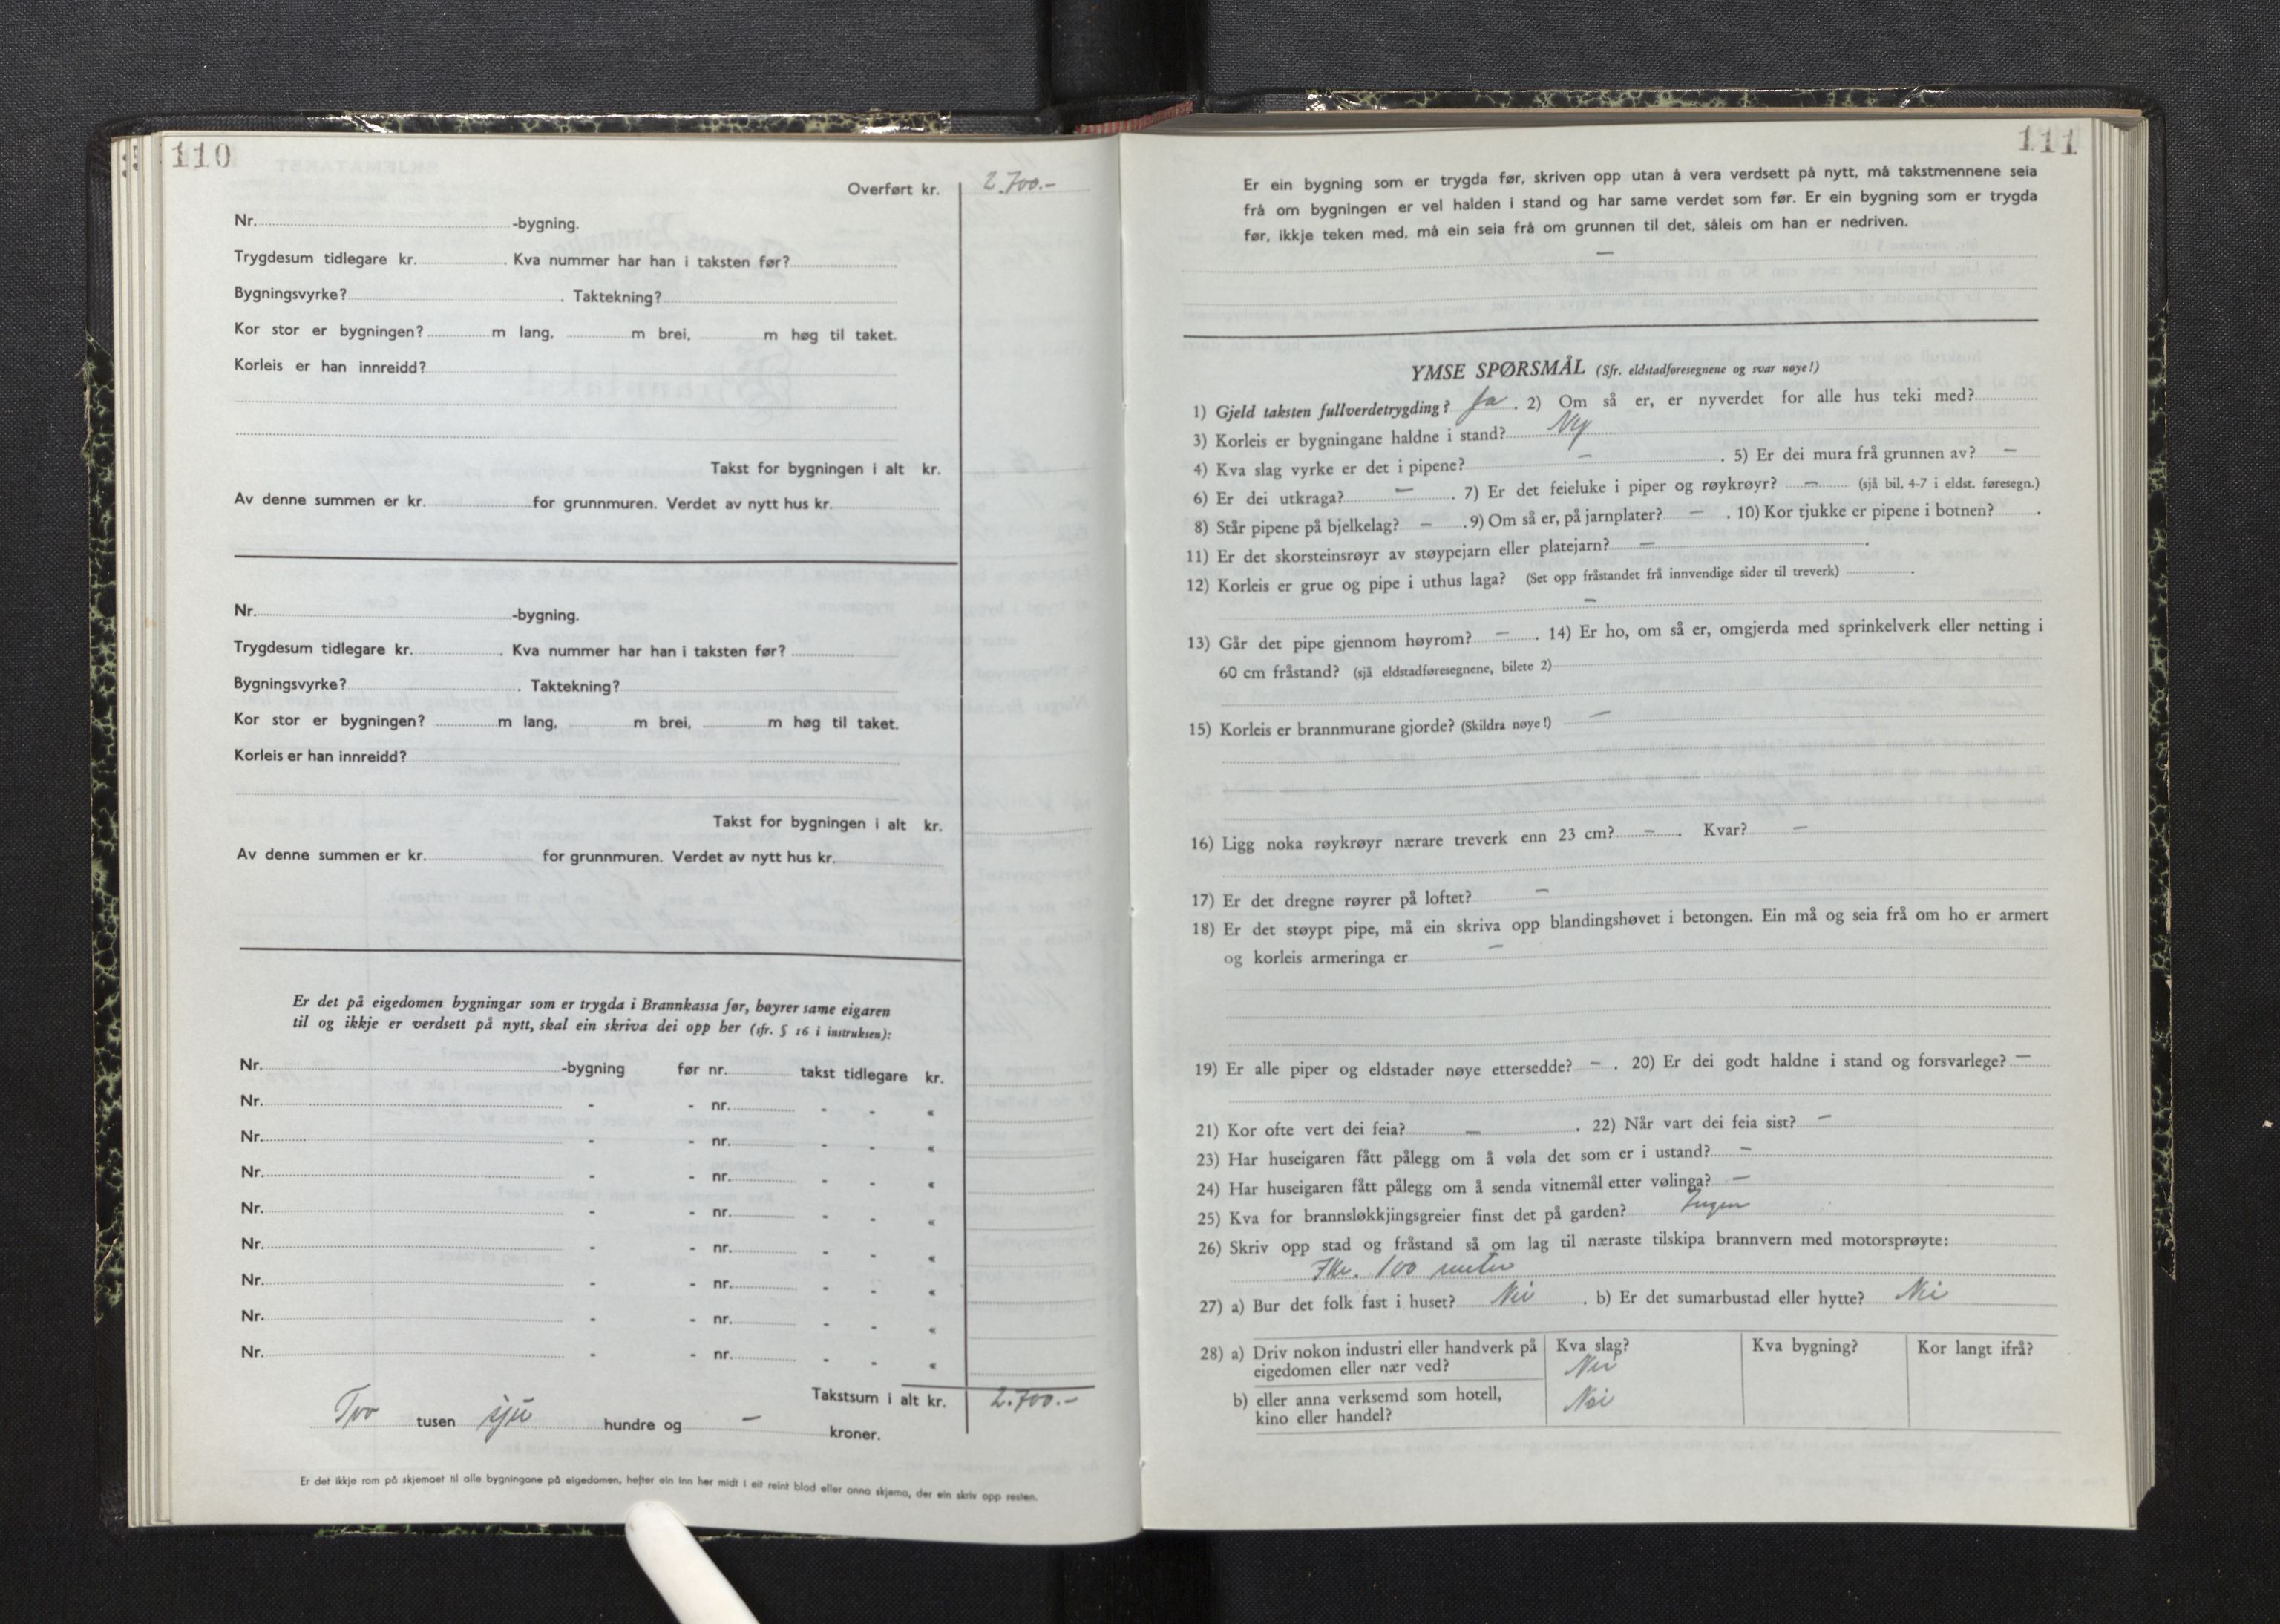 110
Overført kr. 2.700.-
Nr. -bygning.
Trygdesum tidlegare kr. . Kva nummer har han i taksten før?
Bygningsvyrke? . Taktekning?
Kor stor er bygningen? m lang, m brei, m høg til taket.
Korleis er han innreidd?
Takst for bygningen i alt kr.
Av denne summen er kr. for grunnmuren. Verdet av nytt hus kr.
Nr. -bygning.
Trygdesum tidlegare kr. . Kva nummer har han i taksten før?
Bygningsvyrke? . Taktekning?
Kor stor er bygningen? m lang, m brei, m høg til taket.
Korleis er han innreidd?
Takst for bygningen i alt kr.
Av denne summen er kr. for grunnmuren. Verdet av nytt hus kr.
Er det på eigedomen bygningar som er trygda i Brannkassa før, høyrer same eigaren
til og ikkje er verdsett på nytt, skal ein skriva dei opp her (sfr. § 16 i instruksen):
Nr. -bygning før nr. takst tidlegare kr.
Nr. - - nr. - - «
Nr. - - nr. - - «
Nr. - - nr. - - «
Nr. - - nr. - - «
Nr. - - nr. - - «
Nr. - - nr. - - «
Nr. - - nr. - - «
Nr. - - nr. - - «
Takstsum i alt kr. 2.700.-
Tvo tusen sju hundre og — kroner.
Er det ikkje rom på skjemaet til alle bygningane på eigedomen, hefter ein inn her midt i eit reint blad eller anna skjema, der ein skriv opp resten.
111
Er ein bygning som er trygda før, skriven opp utan å vera verdsett på nytt, må takstmennene seia
frå om bygningen er vel halden i stand og har same verdet som før. Er ein bygning som er trygda
før, ikkje teken med, må ein seia frå om grunnen til det, såleis om han er nedriven.
—
YMSE SPØRSMÅL (Sfr. eldstadføresegnene og svar nøye!)
1) Gjeld taksten fullverdetrygding? Ja . 2) Om så er, er nyverdet for alle hus teki med?
3) Korleis er bygningane haldne i stand? Ny
4) Kva slag vyrke er det i pipene? — . 5) Er dei mura frå grunnen av? —
6) Er dei utkraga? — . 7) Er det feieluke i piper og røykrøyr? — (sjå bil. 4-7 i eldst. føresegn.)
8) Står pipene på bjelkelag? — . 9) Om så er, på jarnplater? — . 10) Kor tjukke er pipene i botnen? .
11) Er det skorsteinsrøyr av støypejarn eller platejarn? — .
12) Korleis er grue og pipe i uthus laga? (Set opp fråstandet frå innvendige sider til treverk) .
—
13) Går det pipe gjennom høyrom? — . 14) Er ho, om så er, omgjerda med sprinkelverk eller netting i
60 cm fråstand? (sjå eldstadføresegnene, bilete 2)
15) Korleis er brannmurane gjorde? (Skildra nøye!) —
16) Ligg noka røykrøyr nærare treverk enn 23 cm? — . Kvar? —
17) Er det dregne røyrer på loftet? —
18) Er det støypt pipe, må ein skriva opp blandingshøvet i betongen. Ein må og seia frå om ho er armert
og korleis armeringa er —
19) Er alle piper og eldstader nøye ettersedde? — . 20) Er dei godt haldne i stand og forsvarlege? —
21) Kor ofte vert dei feia? — . 22) Når vart dei feia sist? —
23) Har huseigaren fått pålegg om å vøla det som er i ustand? —
24) Har huseigaren fått pålegg om å senda vitnemål etter vølinga? —
25) Kva for brannsløkkjingsgreier finst det på garden? Ingen
26) Skriv opp stad og fråstand så om lag til næraste tilskipa brannvern med motorsprøyte:
100 meter
27) a) Bur det folk fast i huset? Nei . b) Er det sumarbustad eller hytte? Nei
28) a) Driv nokon industri eller handverk på Kva slag? Kva bygning? Kor langt ifrå?
eigedomen eller nær ved? Nei
b) eller anna verksemd som hotell, Nei
kino eller handel?